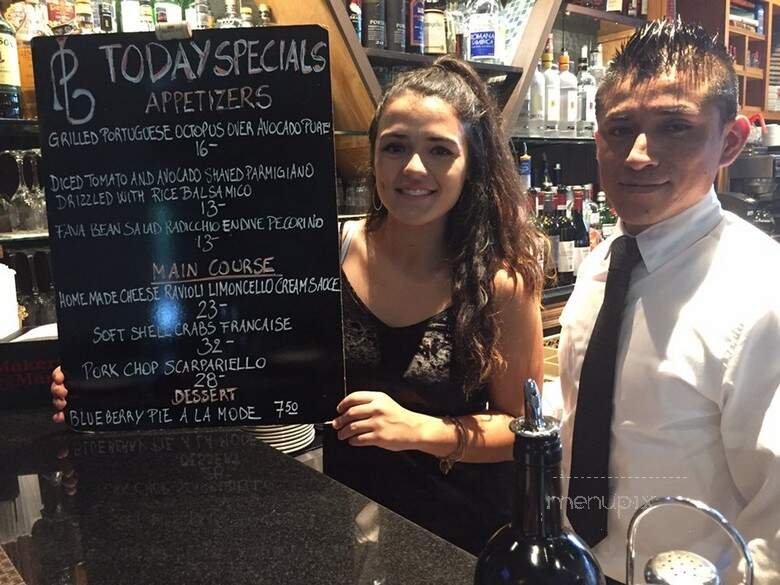 TODAY SPECIALS
APPETIZERS
GRILLED PORTUGUESE OCTOPUS OVER AVOCADO PURE'
16-
DICED TOMATO AND AVOCADO SHAVED PARMIGIANO
DRIZZLED WITH RICE BALSAMICO
13-
FAVA BEAN SALAD RADICCHIO ENDIVE PECORINO
13-
MAIN COURSE
HOME MADE CHEESE RAVIOLI LIMONCELLO CREAM SAUCE
23-
SOFT SHELL CRABS FRANCAISE
32-
PORK CHOP SCARPARIELLO
28-
DESSERT
BLUEBERRY PIE A LA MODE 7.50
menupix